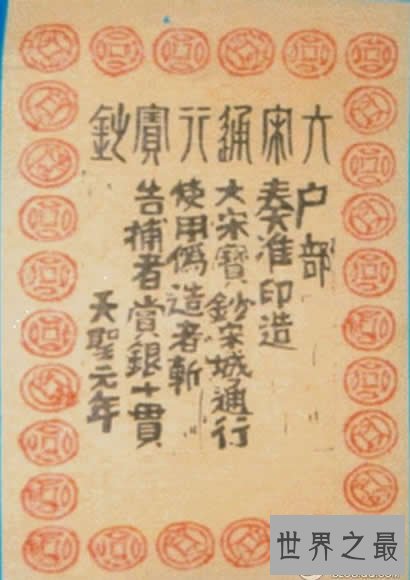 大宋通行寶鈔
户部
奏准印造
大宋寶鈔宋城通行
使用僞造者斬
告捕者賞銀十貫
天聖元年
世界之最